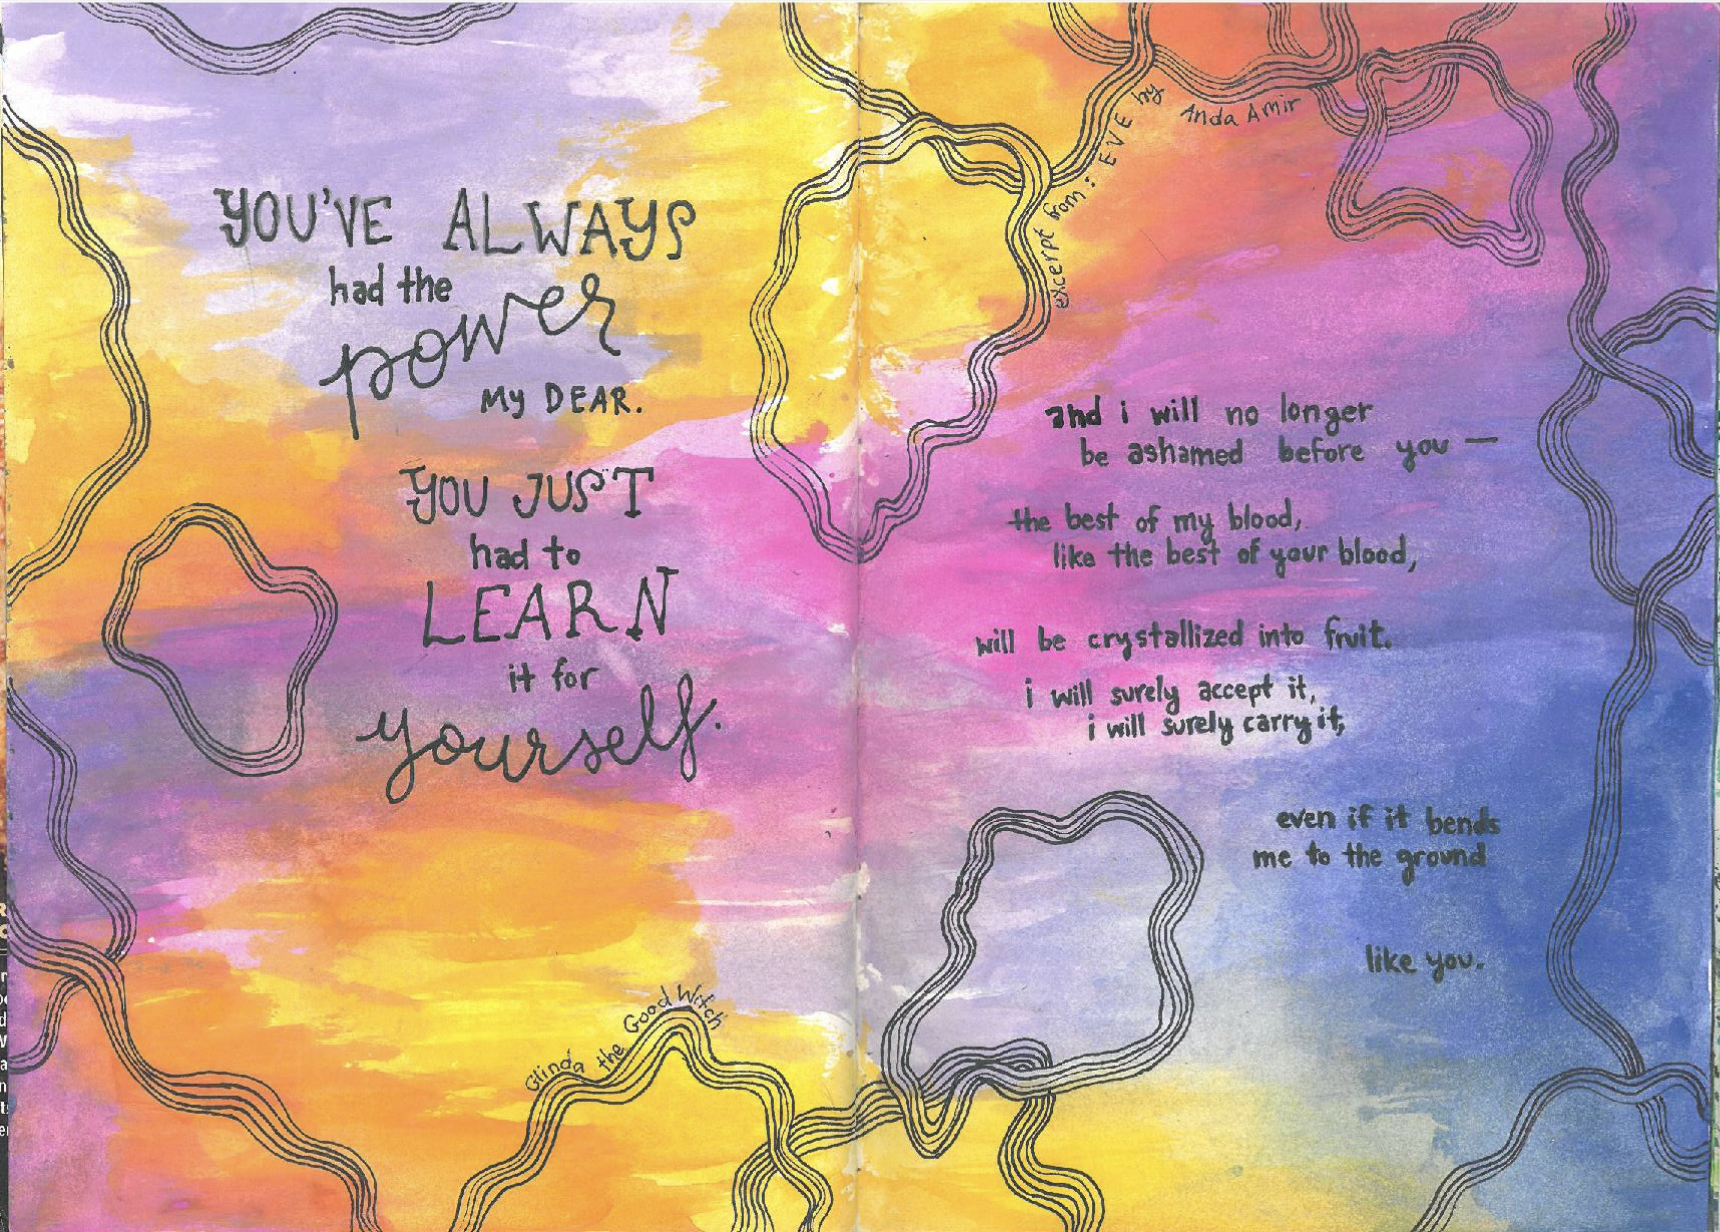 YOU'VE ALWAYS
had the
power
MY DEAR.
YOU JUST
had to
LEARN
it for
yourself.
Glinda the Good Witch
excerpt from: EVE by Anda Amir
and i will no longer
be ashamed before you —
the best of my blood,
like the best of your blood,
will be crystallized into fruit.
i will surely accept it,
i will surely carry it,
even if it bends
me to the ground
like you.